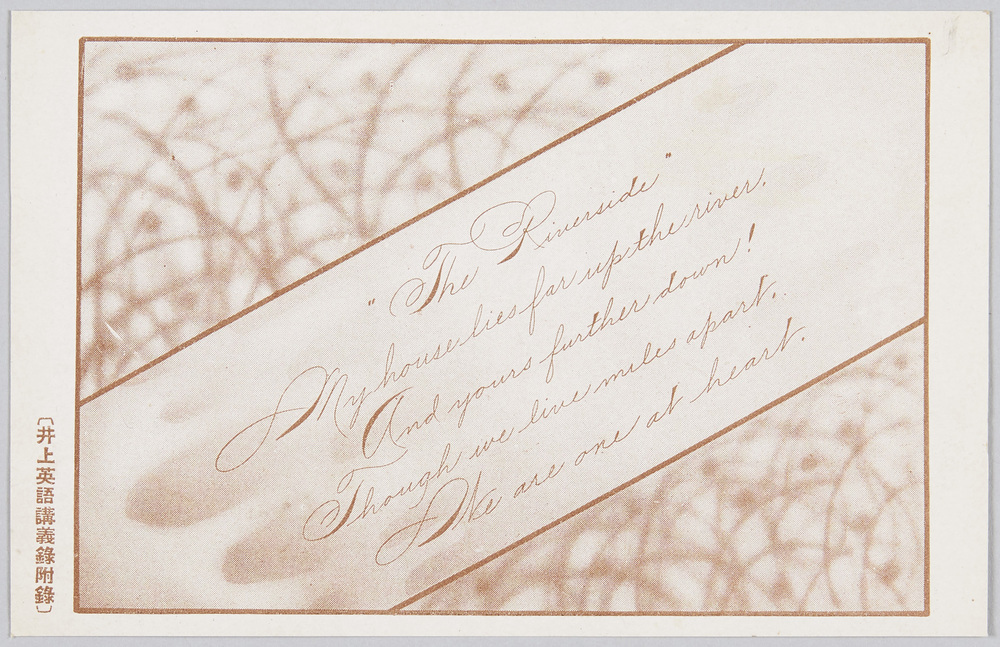 "The Riverside"
My house lies far up the river.
And yours further down!
Though we live miles apart.
We are one at heart.
〔井上英語講義錄附錄〕